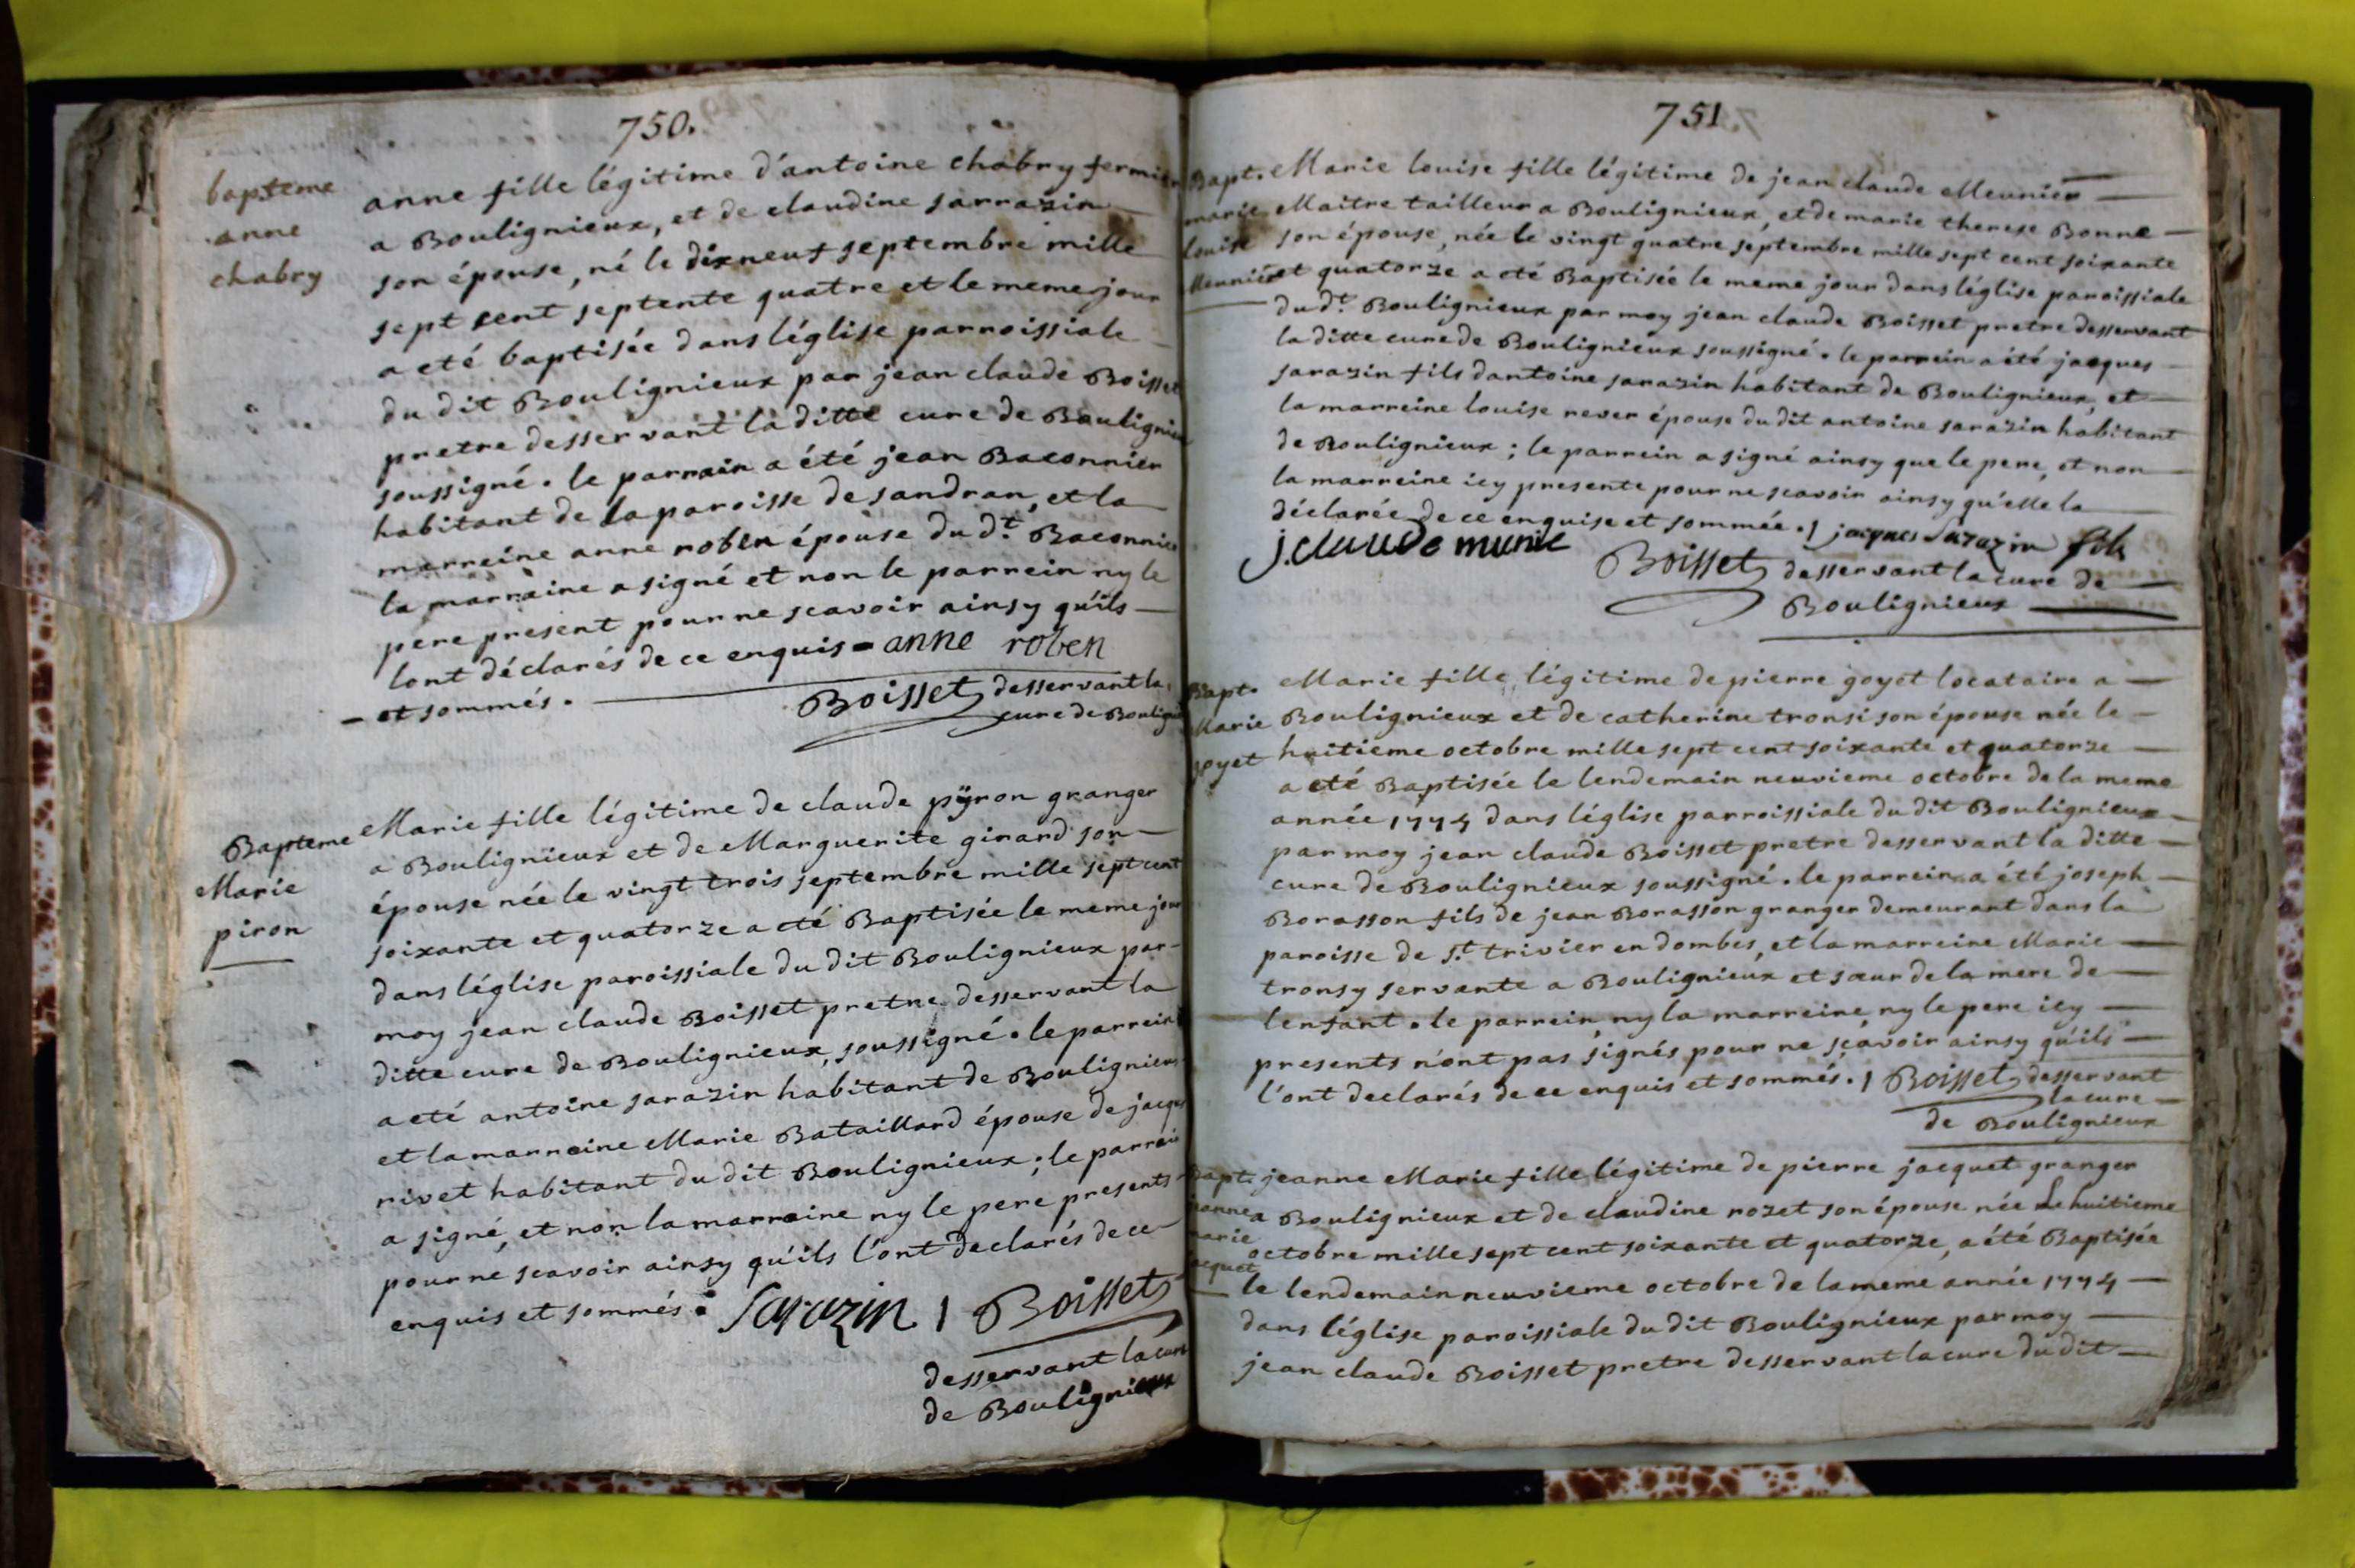 750.
bapteme
anne
chabry
anne fille légitime d'antoine chabry fermier
a Boulignieux, et de claudine sarrazin
son épouse, né le dixneuf septembre mille
sept cent septente quatre et le meme jour
a eté baptisée dans léglise parroissiale
du dit Boulignieux par jean claude Boisset
pretre desservant laditte cure de Boulignieux
soussigné. le parrain a été jean Baconnier
habitant de la paroisse de sandran, et la
marreine anne roben épouse du dt. Baconnier
la marraine a signé et non le parrein ny le
pere present pour ne scavoir ainsy qu'ils
lont déclarés de ce enquis = anne roben
- et sommés.
Boisset desservant la
cure de Boulignieux
Bapteme
Marie
piron
Marie fille légitime de claude pÿron granger
a Boulignieux et de Marguerite girard son
épouse née le vingt trois septembre mille sept cent
soixante et quatorze a eté Baptisée le meme jour
dans léglise paroissiale du dit Boulignieux par
moy jean claude Boisset pretre desservant la
ditte cure de Boulignieux, soussigné. le parrein
a eté antoine sarazin habitant de Boulignieux
et la marraine Marie Bataillard épouse de jacques
rivet habitant du dit Boulignieux; le parrain
a signé, et non la marraine ny le pere presents
pour ne scavoir ainsy qu'ils l'ont declarés de ce
enquis et sommés. Sarazin / Boisset
desservant la cure
de Boulignieux
751
Bapt.
marie
louise
Meunier
Marie louise fille légitime de jean claude Meunier
Maitre tailleur a Boulignieux, et de marie therese Bonne
son épouse, née le vingt quatre septembre mille sept cent soixante
et quatorze a eté Baptisée le meme jour dans léglise paroissiale
du dt. Boulignieux par moy jean claude Boisset pretre desservant
la ditte cure de Boulignieux soussigné. le parrein a été jacques
sarazin fils dantoine sarazin habitant de Boulignieux, et
la marreine louise rever épouse du dit antoine sarazin habitant
de Boulignieux; le parrein a signé ainsy que le pere, et non
la marreine icy presente pour ne scavoir ainsy qu'elle la
déclarée de ce enquise et sommée. / jacques Sarazin fils
j. claude munie
Boisset desservant la cure de
Boulignieux
Bapt.
Marie
goyet
Marie fille légitime de pierre goyet locataire a
Boulignieux et de catherine tronsi son épouse née le
huitieme octobre mille sept cent soixante et quatorze
a eté Baptisée le lendemain neuvieme octobre de la meme
année 1774 dans léglise parroissiale du dit Boulignieux
par moy jean claude Boisset pretre desservant la ditte
cure de Boulignieux soussigné. le parrein a été joseph
Borasson fils de jean Borasson granger demeurant dans la
paroisse de st. trivier en dombes, et la marreine Marie
tronsy servante a Boulignieux et sœur de la mere de
lenfant. le parrein, ny la marreine, ny le pere icy
presents n'ont pas signés pour ne sçavoir ainsy qu'ils
l'ont declarés de ce enquis et sommés. / Boisset desservant
la cure
de Boulignieux
Bapt.
jeanne
marie
jacquet
jeanne Marie fille légitime de pierre jacquet granger
a Boulignieux et de claudine rozet son épouse née Le huitieme
octobre mille sept cent soixante et quatorze, a été Baptisée
le lendemain neuvieme octobre de la meme année 1774
dans l'église paroissiale du dit Boulignieux par moy
jean claude Boisset pretre desservant la cure du dit